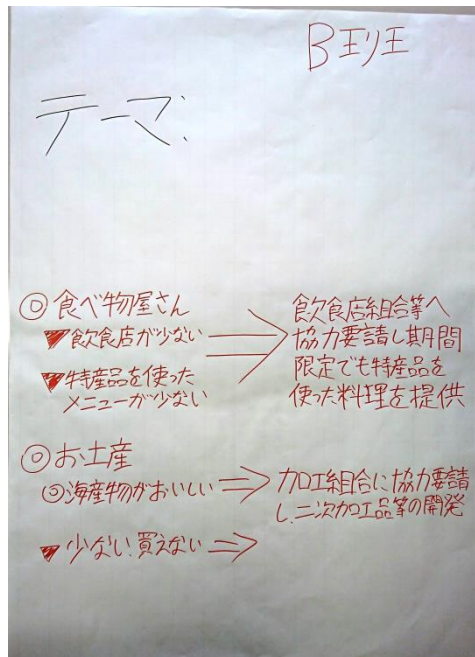 B班
テーマ
◎食べ物屋さん
▼飲食店が少ない
▼特産品を使った
メニューが少ない
飲食店組合等へ
協力要請し期間
限定でも特産品を
使った料理を提供
◎お土産
◎海産物がおいしい
加工組合に協力要請
し、二次加工品等の開発
▼少ない、買えない